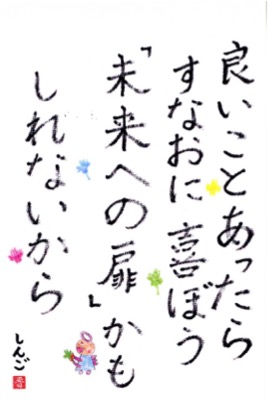 良いことあったら
すなおに喜ぼう
「未来への扉」かも
しれないから
しんご